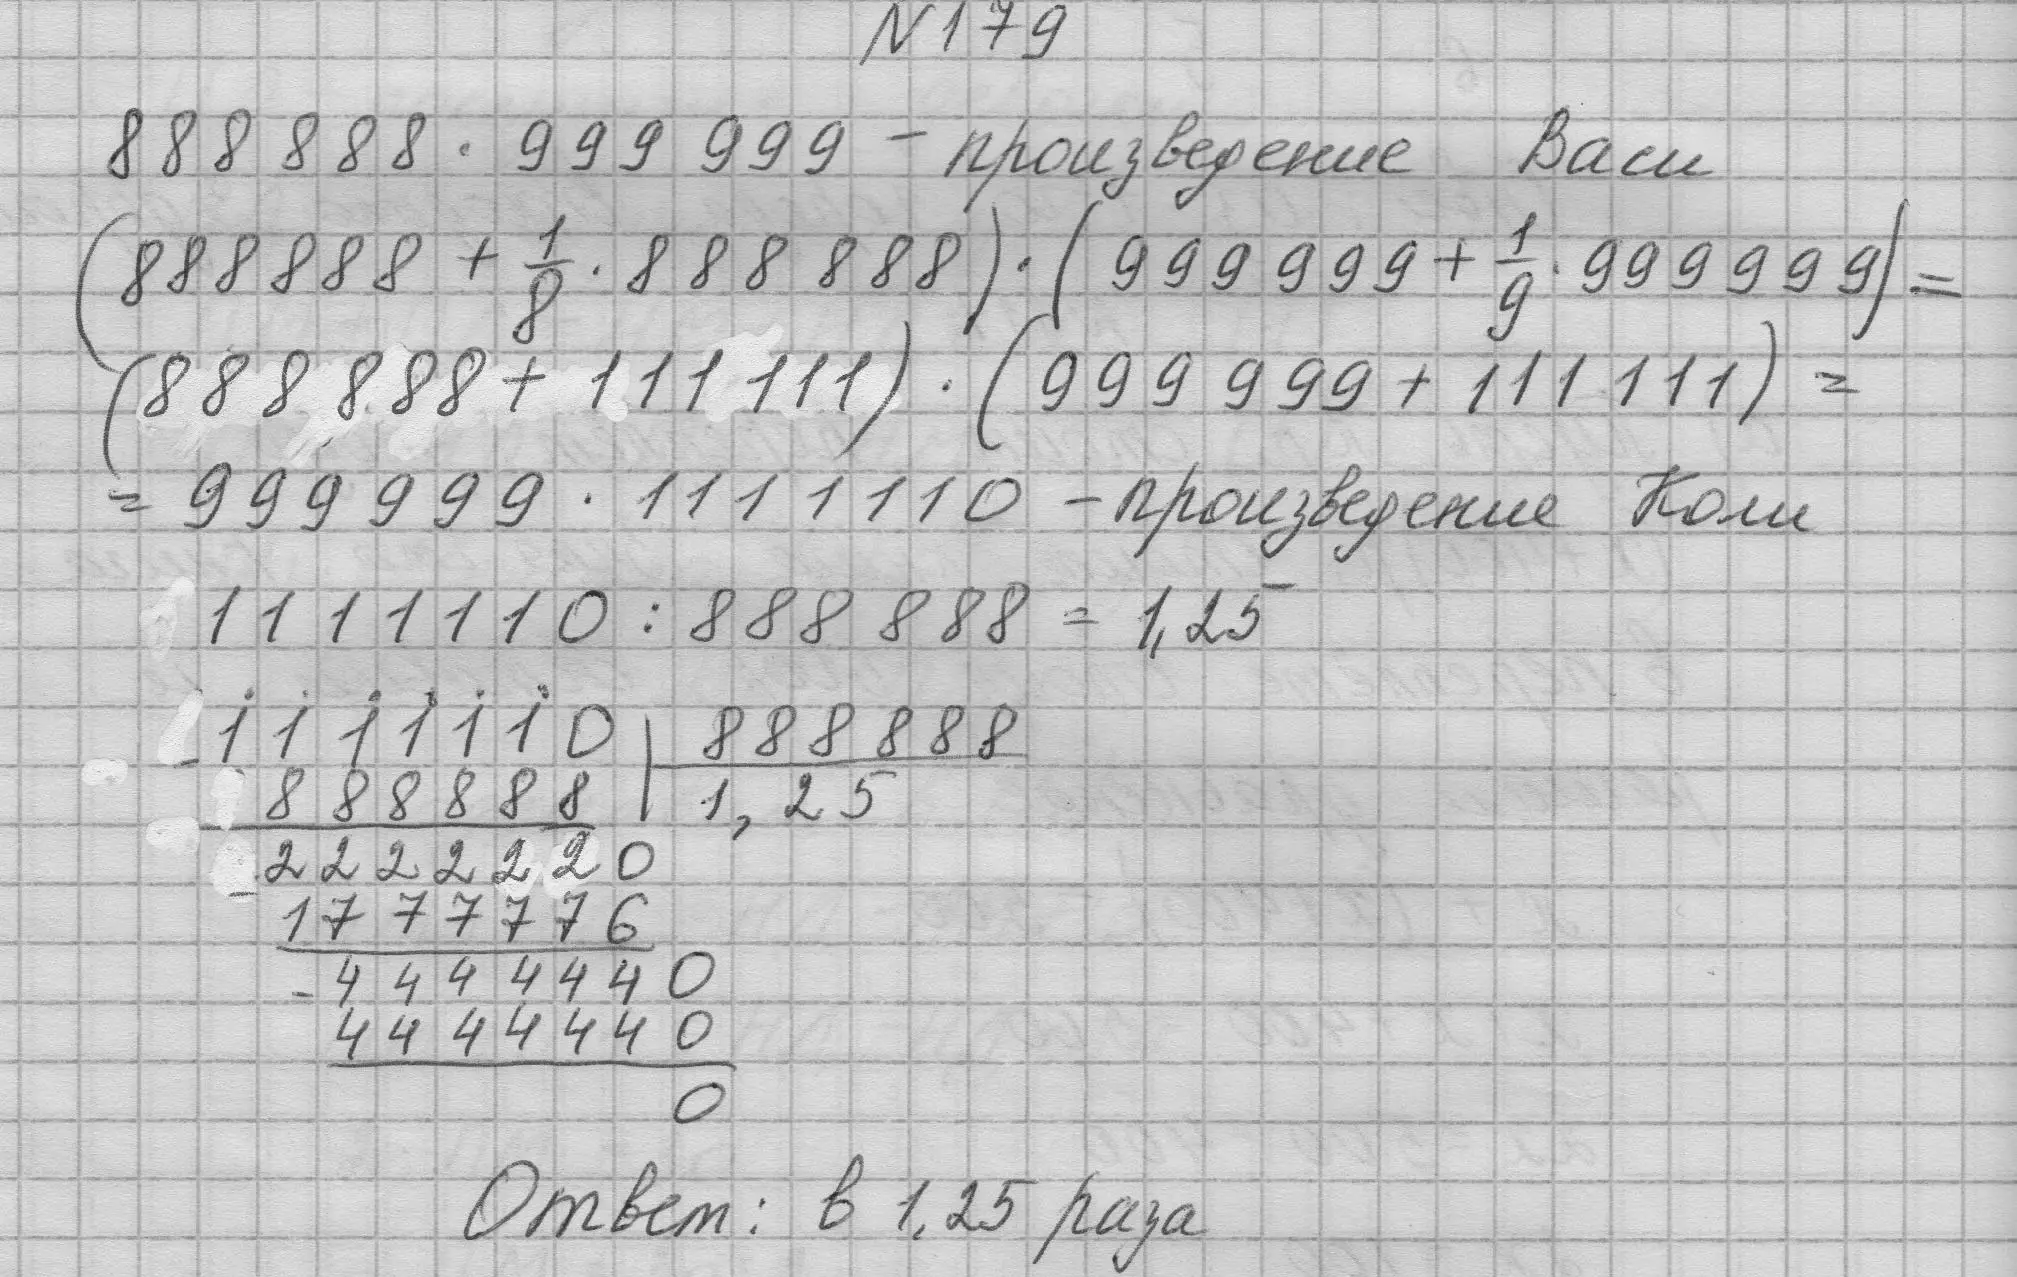 N179
888 888 · 999 999 – произведение Васи
(888888 + 1/8 · 888 888) · (999 999 + 1/9 · 999999) =
(888 888 + 111 111) · (999 999 + 111 111) =
= 999 999 · 1111110 – произведение Коли
1111110 : 888 888 = 1,25
1111110 | 888888
- 888888 | 1,25
- 2222220
1777776
- 4444440
4444440
0
Ответ: в 1,25 раза